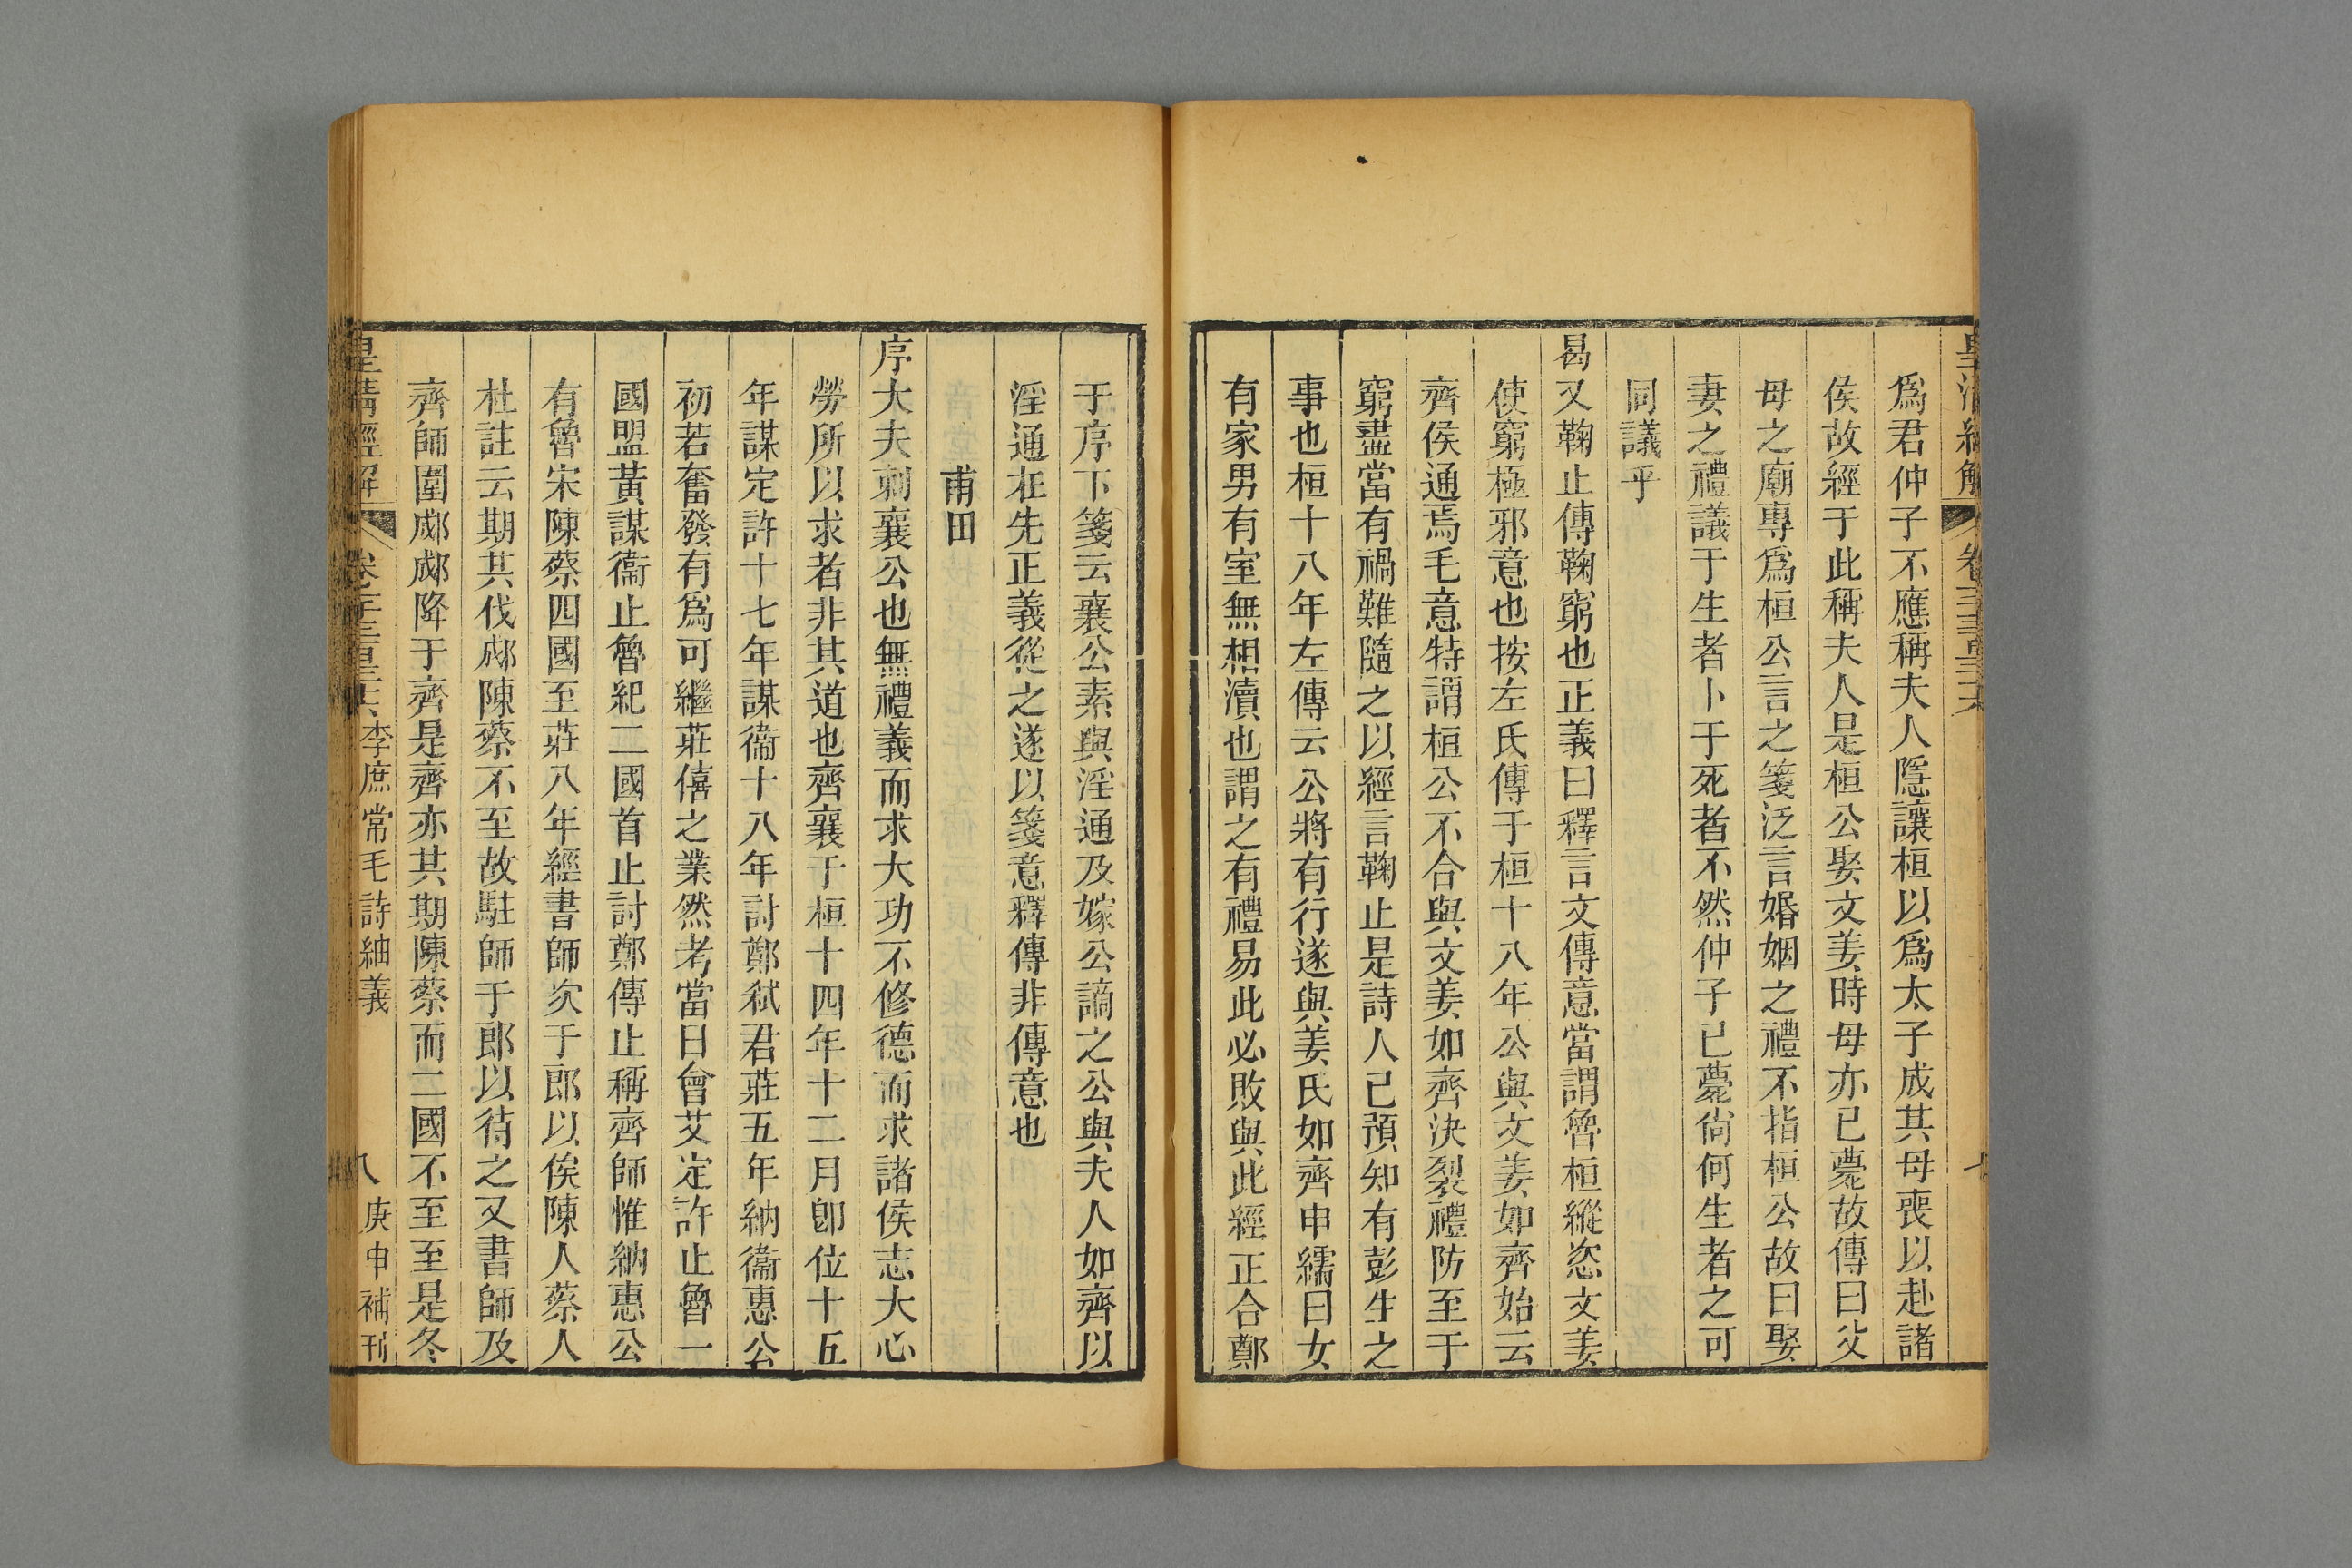 爲君仲子不應稱夫人隱讓桓以爲太子成其母喪以赴諸
侯故經于此稱夫人是桓公娶文姜時母亦已薨故傳曰父
母之廟專爲桓公言之箋泛言婚姻之禮不指桓公故曰娶
妻之禮議于生者卜于死者不然仲子已薨尙何生者之可
同議乎
曷又鞠止傳鞠窮也正義曰釋言文傳意當謂魯桓縱恣文姜
使窮極邪意也按左氏傳于桓十八年公與文姜如齊始云
齊侯通焉毛意特謂桓公不合與文姜如齊決裂禮防至于
窮盡當有禍難隨之以經言鞠止是詩人已預知有彭生之
事也桓十八年左傳云公將有行遂與姜氏如齊申繻曰女
有家男有室無相瀆也謂之有禮易此必敗與此經正合鄭
于序下箋云襄公素與淫通及嫁公謫之公與夫人如齊以
淫通在先正義從之遂以箋意釋傳非傳意也
甫田
序大夫刺襄公也無禮義而求大功不修德而求諸侯志大心
勞所以求者非其道也齊襄于桓十四年十二月卽位十五
年謀定許十七年謀衞十八年討鄭弒君莊五年納衞惠公
初若奮發有爲可繼莊僖之業然考當日會艾定許止魯一
國盟黃謀衞止魯紀二國首止討鄭傳止稱齊師惟納惠公
有魯宋陳蔡四國至莊八年經書師次于郎以俟陳人蔡人
杜註云期共伐郕陳蔡不至故駐師于郎以待之又書師及
齊師圍郕郕降于齊是齊亦其期陳蔡而二國不至至是冬
皇清經解 李庶常毛詩紬義 八 庚申補刊